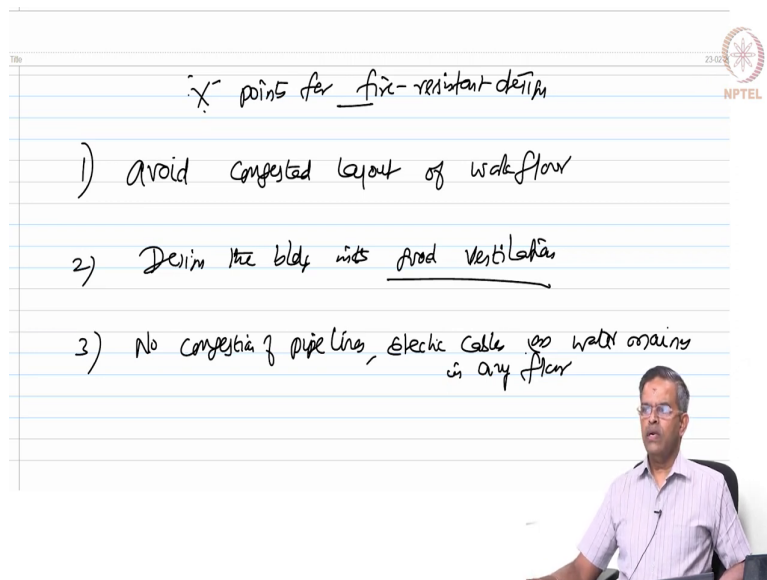 Title
23-02-2
NPTEL
"X" points for fire-resistant design
1) avoid congested layout of work floor
2) Design the bldg with good ventilation
3) No congestion of pipe lines, electric cables or water mains
in any floor